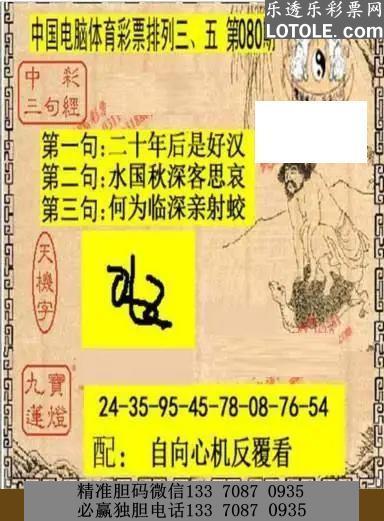 乐透乐彩票网
LOTOLE.COM
中国电脑体育彩票排列三、五 第080期
中彩
三句經
第一句:二十年后是好汉
第二句:水国秋深客思哀
第三句:何为临深亲射蛟
天機字
九寶
蓮燈
24-35-95-45-78-08-76-54
配: 自向心机反覆看
精准胆码微信133 7087 0935
必赢独胆电话133 7087 0935